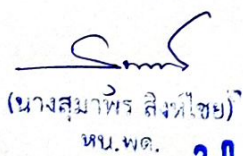 (นางสุมาพร สิงห์ไชย)
หน.พด.